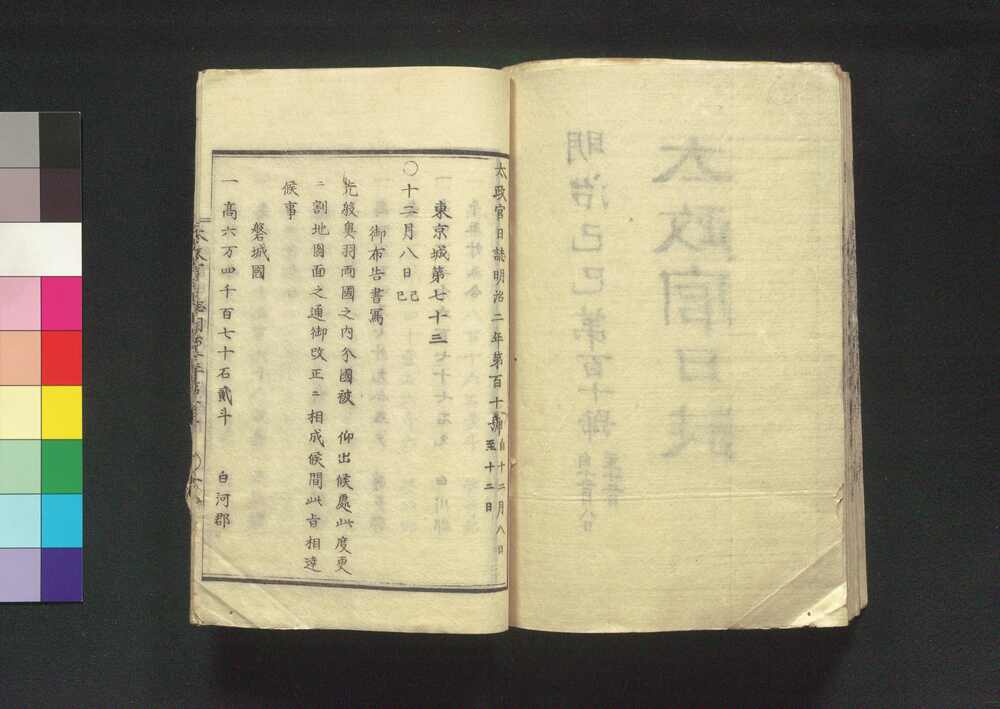 太政官日誌
明治己巳第百十號
自十二月八日
至十二日
太政官日誌明治二年第百十號 自十二月八日 至十二日
東京城第七十三
〇十二月八日 己巳
御布告書寫
先般奥羽両國之内分國被 仰出候處此度更
ニ割地圖面之通御改正ニ相成候間此旨相達
候事
磐城國
一 高六万四千百七十石貳斗 白河郡